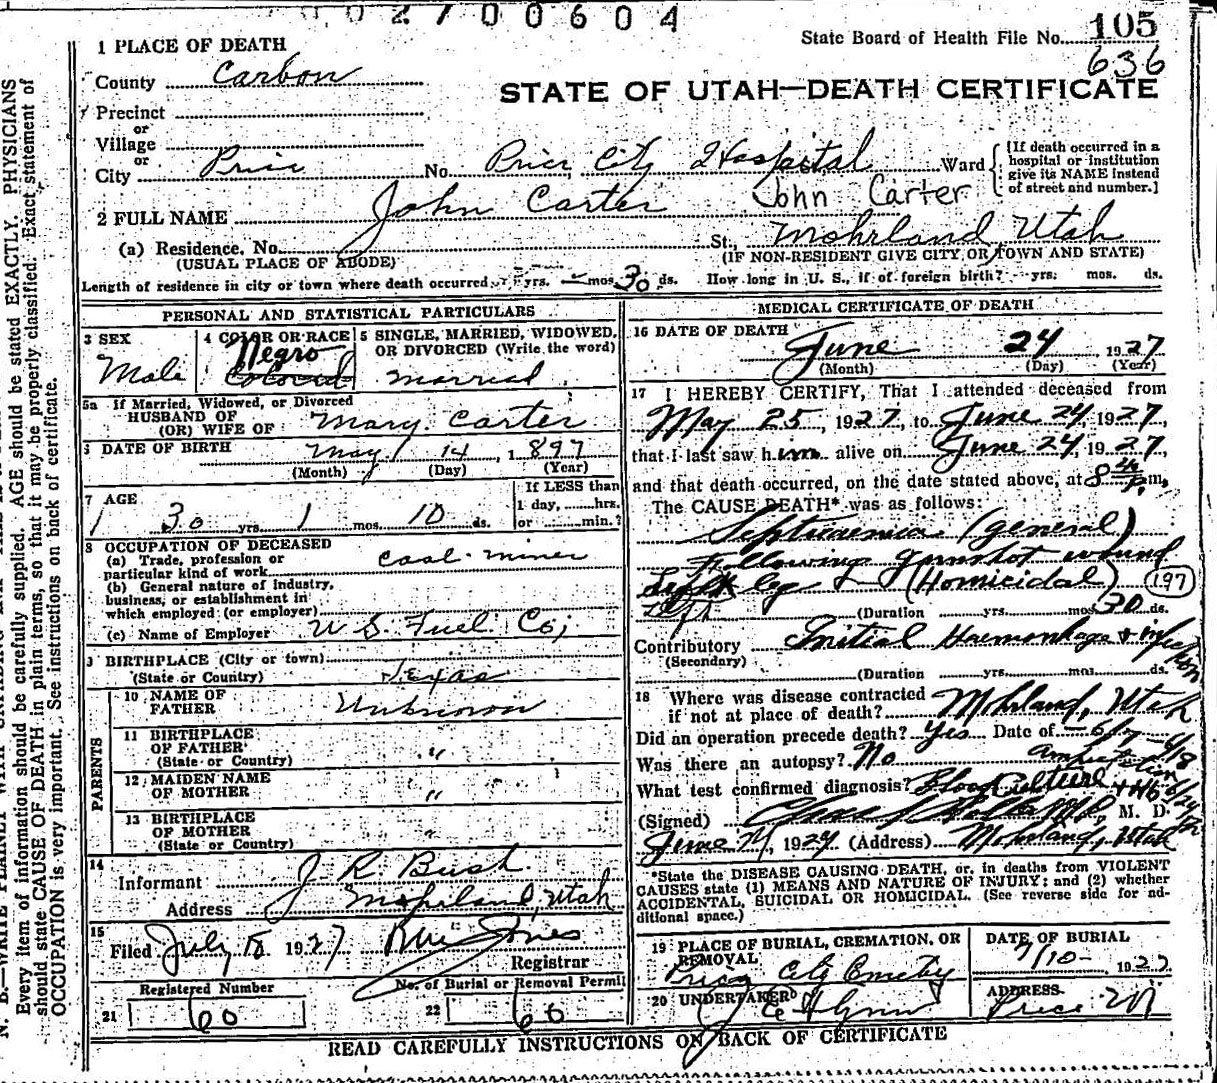 002700604
State Board of Health File No. 105
636
1 PLACE OF DEATH
County Carbon
STATE OF UTAH—DEATH CERTIFICATE
Precinct
or
Village
or
City Price No. Price City Hospital Ward
[If death occurred in a hospital or institution give its NAME instead of street and number.]
2 FULL NAME John Carter John Carter
(a) Residence. No. St., Mohrland Utah
(USUAL PLACE OF ABODE) (IF NON-RESIDENT GIVE CITY OR TOWN AND STATE)
Length of residence in city or town where death occurred yrs. mos. 30 ds. How long in U. S., if of foreign birth? yrs. mos. ds.
PERSONAL AND STATISTICAL PARTICULARS
3 SEX
Male
4 COLOR OR RACE
Negro
Colored
5 SINGLE, MARRIED, WIDOWED, OR DIVORCED (Write the word)
married
5a If Married, Widowed, or Divorced
HUSBAND OF
(OR) WIFE OF Mary Carter
DATE OF BIRTH May 14, 1897
(Month) (Day) (Year)
7 AGE
30 yrs. 1 mos. 10 ds.
If LESS than
1 day, hrs.
or min.?
8 OCCUPATION OF DECEASED
(a) Trade, profession or
particular kind of work coal-miner
(b) General nature of Industry,
business, or establishment in
which employed (or employer)
(c) Name of Employer U S. Fuel Co;
BIRTHPLACE (City or town)
(State or Country) Texas
PARENTS
10 NAME OF
FATHER Unknown
11 BIRTHPLACE
OF FATHER "
(State or Country)
12 MAIDEN NAME
OF MOTHER "
13 BIRTHPLACE
OF MOTHER "
(State or Country)
14
Informant J. R. Bush
Address Mohrland, Utah
15
Filed July 1927
Registrar
Registered Number
21 60
No. of Burial or Removal Permit
22 60
MEDICAL CERTIFICATE OF DEATH
16 DATE OF DEATH
June 24, 1927
(Month) (Day) (Year)
17 I HEREBY CERTIFY, That I attended deceased from
May 25, 1927, to June 24, 1927,
that I last saw him alive on June 24, 1927,
and that death occurred, on the date stated above, at 8 p.m.
The CAUSE DEATH* was as follows:
Septicaemia (general)
following gunshot wound
leg (Homicidal) 197
left
(Duration yrs. mos. 30 ds.
Contributory Initial Haemorrhage & infection
(Secondary)
(Duration yrs. mos. ds.
18 Where was disease contracted
if not at place of death? Mohrland, Utah
Did an operation precede death? Yes Date of 6/7 - 6/18
amputation
Was there an autopsy? No
What test confirmed diagnosis? Blood Culture
(Signed) M. D.
June 1927 (Address) Mohrland, Utah
*State the DISEASE CAUSING DEATH, or, in deaths from VIOLENT
CAUSES state (1) MEANS AND NATURE OF INJURY; and (2) whether
ACCIDENTAL, SUICIDAL OR HOMICIDAL. (See reverse side for ad-
ditional space.)
19 PLACE OF BURIAL, CREMATION, OR
REMOVAL
Price City
DATE OF BURIAL
7/10- 1927
20 UNDERTAKER
Flynn
ADDRESS
Price
READ CAREFULLY INSTRUCTIONS ON BACK OF CERTIFICATE
Every item of information should be carefully supplied. AGE should be stated EXACTLY. PHYSICIANS
should state CAUSE OF DEATH in plain terms, so that it may be properly classified. Exact statement of
OCCUPATION is very important. See instructions on back of certificate.